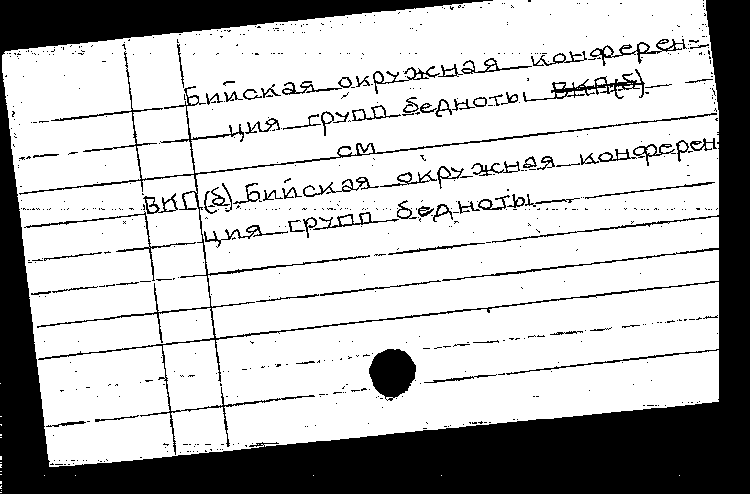 Бийская окружная конферен-
ция групп бедноты ВКП(б)
см
ВКП(б). Бийская окружная конферен
ция групп бедноты